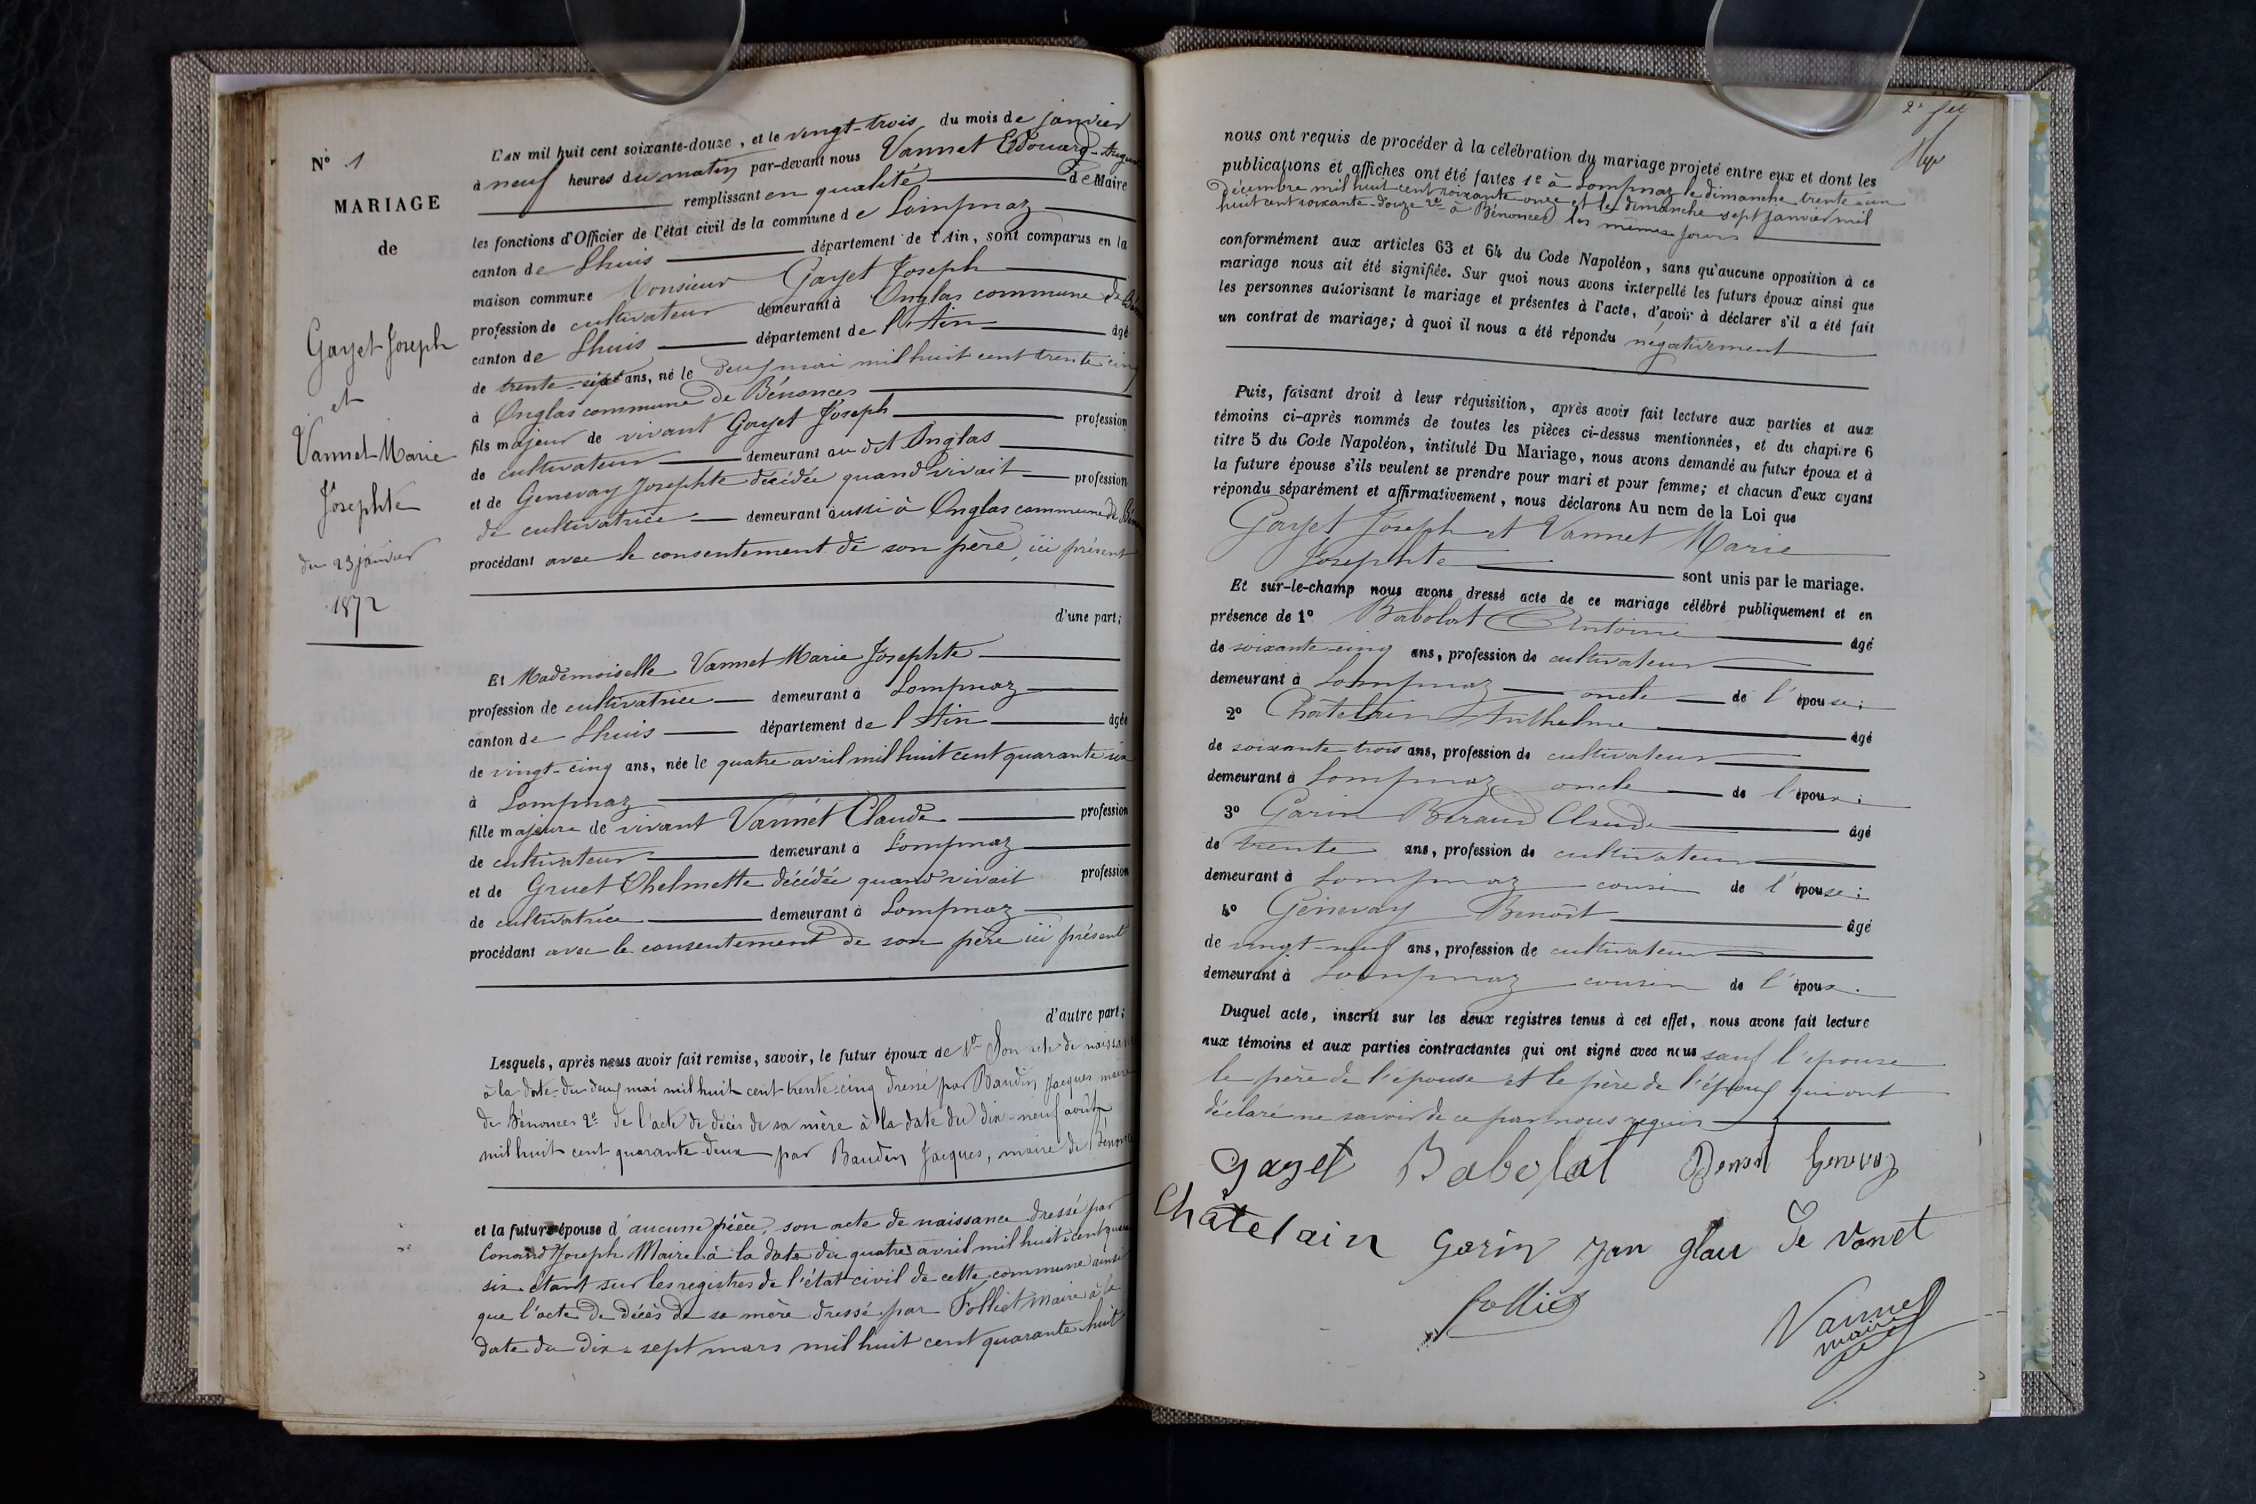 N° 1
MARIAGE
de
Gayet Joseph
et
Vannet Marie
Josephte
du 23 janvier
1872
L'AN mil huit cent soixante-douze, et le vingt-trois du mois de janvier
à neuf heures du matin par-devant nous Vannet Edouard-
remplissant en qualité de Maire
les fonctions d'Officier de l'état civil de la commune de Lompnaz
canton de Lhuis département de l'Ain, sont comparus en la
maison commune Monsieur Gayet Joseph
profession de cultivateur demeurant à Onglas commune de
canton de Lhuis département de l'Ain âgé
de trente-six ans, né le deuf mai mil huit cent trente cinq
à Onglas commune de Bénonces
fils majeur de vivant Gayet Joseph profession
de cultivateur demeurant au dit Onglas
et de Genevay Josephte décédée quand vivait profession
de cultivatrice demeurant aussi à Onglas commune de
procédant avec le consentement de son père ici présent
d'une part;
Et Mademoiselle Vannet Marie Josephte
profession de cultivatrice demeurant à Lompnaz
canton de Lhuis département de l'Ain âgée
de vingt-cinq ans, née le quatre avril mil huit cent quarante six
à Lompnaz
fille majeure de vivant Vannet Claude profession
de cultivateur demeurant à Lompnaz
et de Gruet Thelmette décédée quand vivait profession
de cultivatrice demeurant à Lompnaz
procédant avec le consentement de son père ici présent
d'autre part;
Lesquels, après nous avoir fait remise, savoir, le futur époux de 1° Son acte de
à la date du deuf mai mil huit cent trente-cinq dressé par Baudin Jacques maire
de Bénonces 2° de l'acte de décès de sa mère à la date du dix-neuf août
mil huit cent quarante-deux par Baudin Jacques, maire de
et la future épouse d'aucune pièce, son acte de naissance dressé par
Conand Joseph Maire à la date du quatre avril mil huit cent
six étant sur les registres de l'état civil de cette commune ainsi
que l'acte de décès de sa mère dressé par Folliet Maire à la
date du dix-sept mars mil huit cent quarante-huit
2e
nous ont requis de procéder à la célébration du mariage projeté entre eux et dont les
publications et affiches ont été faites 1° à Lompnaz le dimanche trente-un
décembre mil huit cent soixante-onze et le dimanche sept janvier mil
huit cent soixante-douze 2° à Bénonces les mêmes jours
conformément aux articles 63 et 64 du Code Napoléon, sans qu'aucune opposition à ce
mariage nous ait été signifiée. Sur quoi nous avons interpellé les futurs époux ainsi que
les personnes autorisant le mariage et présentes à l'acte, d'avoir à déclarer s'il a été fait
un contrat de mariage; à quoi il nous a été répondu négativement
Puis, faisant droit à leur réquisition, après avoir fait lecture aux parties et aux
témoins ci-après nommés de toutes les pièces ci-dessus mentionnées, et du chapitre 6
titre 5 du Code Napoléon, intitulé Du Mariage, nous avons demandé au futur époux et à
la future épouse s'ils veulent se prendre pour mari et pour femme; et chacun d'eux ayant
répondu séparément et affirmativement, nous déclarons Au nom de la Loi que
Gayet Joseph et Vannet Marie
Josephte sont unis par le mariage.
Et sur-le-champ nous avons dressé acte de ce mariage célébré publiquement et en
présence de 1° Babolat Antoine âgé
de soixante-cinq ans, profession de cultivateur
demeurant à Lompnaz oncle de l'épouse;
2° Châtelain Anthelme âgé
de soixante trois ans, profession de cultivateur
demeurant à Lompnaz oncle de l'épouse;
3° Garin Béraud Claude âgé
de trente ans, profession de cultivateur
demeurant à Lompnaz cousin de l'épouse;
4° Génevay Benoît âgé
de vingt-neuf ans, profession de cultivateur
demeurant à Lompnaz cousin de l'époux.
Duquel acte, inscrit sur les deux registres tenus à cet effet, nous avons fait lecture
aux témoins et aux parties contractantes qui ont signé avec nous sauf l'épouse
le père de l'épouse et le père de l'époux qui ont
déclaré ne savoir de ce par nous requis
gayet Babolat Benoit Genevay
Châtelain Garin Jan glau Je Vanet
folliet
Vannet
maire